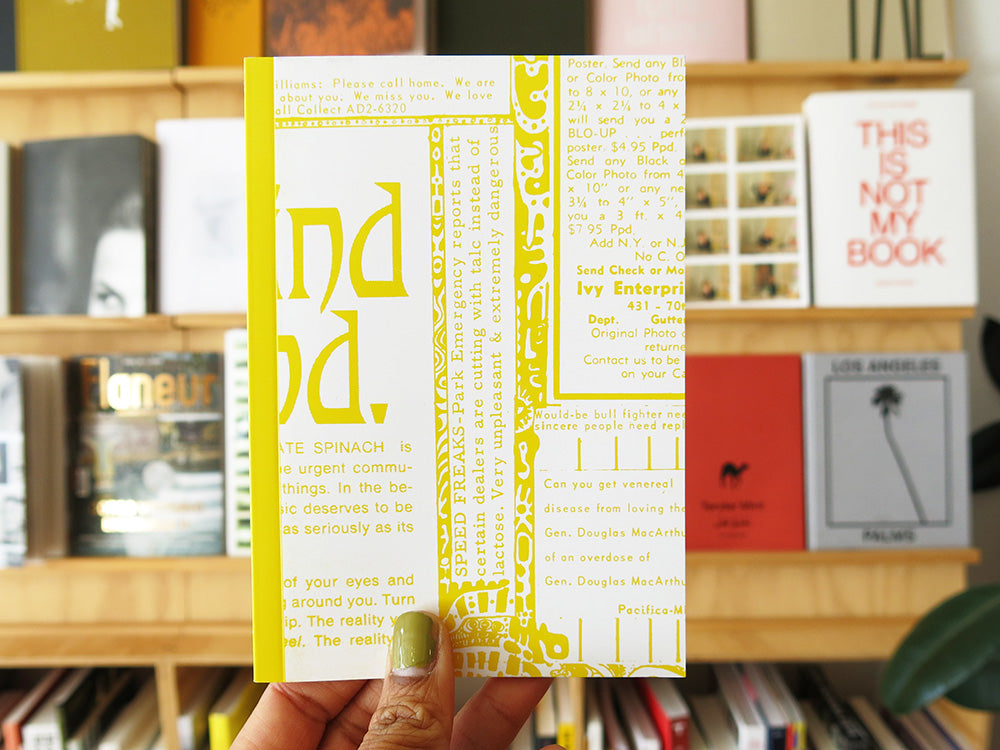 illiams: Please call home. We are
about you. We miss you. We love
all Collect AD2-6320
ind
od.
ATE SPINACH is
e urgent commu-
things. In the be-
sic deserves to be
as seriously as its
of your eyes and
g around you. Turn
ip. The reality
eel. The reality
SPEED FREAKS-Park Emergency reports that
certain dealers are cutting with talc instead of
lactose. Very unpleasant & extremely dangerous
Poster. Send any Bl
or Color Photo fro
to 8 x 10, or any
2¼ x 2¼ to 4 x
will send you a 2
BLO-UP . . . perf
poster. $4.95 Ppd.
Send any Black o
Color Photo from 4
x 10" or any ne
3¼ to 4" x 5",
you a 3 ft. x 4
$7.95 Ppd.
Add N.Y. or N.J
No C. O
Send Check or Mo
Ivy Enterpri
431 - 70t
Dept. Gutter
Original Photo
returne
Contact us to be
on your Ca
Would-be bull fighter nee
sincere people need repl
Can you get venereal
disease from loving the
Gen. Douglas MacArthu
of an overdose of
Gen. Douglas MacArthu
Pacifica-Mi
THIS
IS
NOT
MY
BOOK
flaneur
LOS ANGELES
PALMS